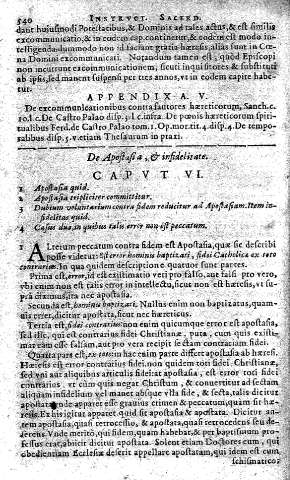 540 INSTRVCT. SACERD.
dant huiusmodi Potestatibus, & Dominis ad tales actus, & est similis
excommunicatio, & in eodem cap. continetur, & eodem est modo in-
telligenda dummodo non id faciant gratia hæresis, alias sunt in Cœ-
na Domini excommunicati. Notandum tamen est, quod Episcopi
non incurrunt excommunicationem, sicuti inquisitores & substituti
ab ipsis, sed manent suspensi per tres annos, vt in eodem capite habe-
tur.
APPENDIX A. V.
De excommunicationibus contra fautores hæreticorum, Sanch. c.
10. l. c. De Castro Palao disp. 3. l. c. infra. De pœnis hæreticorum spiri-
tualibus Ferd. de Castro Palao tom. 1. Op. mor. tit. 4. disp. 4. De tempo-
ralibus disp. 5. v. etiam Thesaurum in praxi.
De Apostasia, & infidelitate.
CAPVT VI.
1 Apostasia quid.
2 Apostasia tripliciter committitur.
3 Dubium voluntarium contra fidem reducitur ad Apostasiam. Item in-
fidelitas quid.
4 Casus duo, in quibus talis error non est peccatum.
1 ALterum peccatum contra fidem est Apostasia, quæ sic describi
posse videtur: Est error hominis baptizati, fidei Catholicæ ex toto
contrarius. In qua quidem descriptione quatuor sunt partes.
Prima est, error, id est existimatio veri pro falso, aut falsi pro vero,
vbi enim non est talis error in intellectu, sicut non est hæresis, vt su-
prà diximus, ita nec apostasia.
Secunda est, hominis baptizati. Nullus enim non baptizatus, quam-
uis erret, dicitur apostata, sicut nec hæreticus.
Tertia est, fidei contrarius non enim quicumque error est apostasia,
sed ille, qui est contrarius fidei Christianæ, puta, cum quis existi-
mat eam esse falsam, aut pro vera recipit sectam contrariam fidei.
Quarta pars est, ex toto in hac enim parte differt apostasia ab hæresi.
Hæresis est error contrarius fidei, non quidem toti fidei Christianæ,
sed vni aut aliquibus articulis fidei: at apostasia, est error toti fidei
contrarius, vt cùm quis negat Christum, & conuertitur ad sectam
aliquam infidelium vel manet absque vlla fide, & secta, talis dicitur
apostata: vnde apparet esse grauius crimen & peccatum, quàm sit hæ-
resis. Ex his igitur apparet quid sit apostasia & apostata. Dicitur au-
tem apostasia, quasi retrocessio, & apostata, quasi retrocedens seu de-
serens. Vnde meritò, qui fidem, quam habebat, & per baptismum pro-
fessus erat, abiicit dicitur apostata. Solent etiam Doctores eum, qui
obedientiam Ecclesiæ deserit appellare apostatam, qui idem est cum
schismatico: